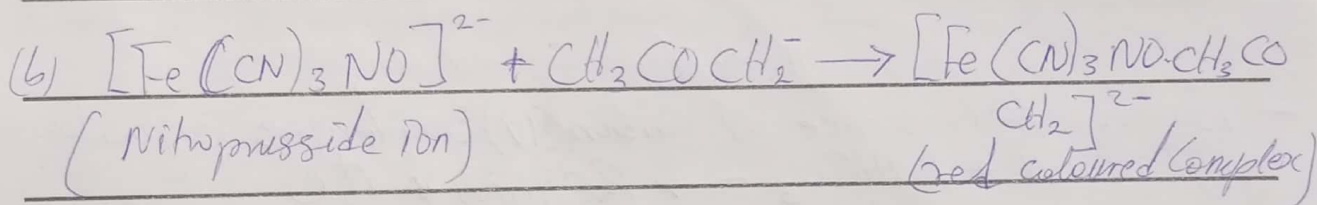 (b) [Fe(CN)₃NO]²⁻ + CH₃COCH₂⁻ → [Fe(CN)₃NO.CH₃CO
CH₂]²⁻
(Nitroprusside ion) (red coloured Complex)